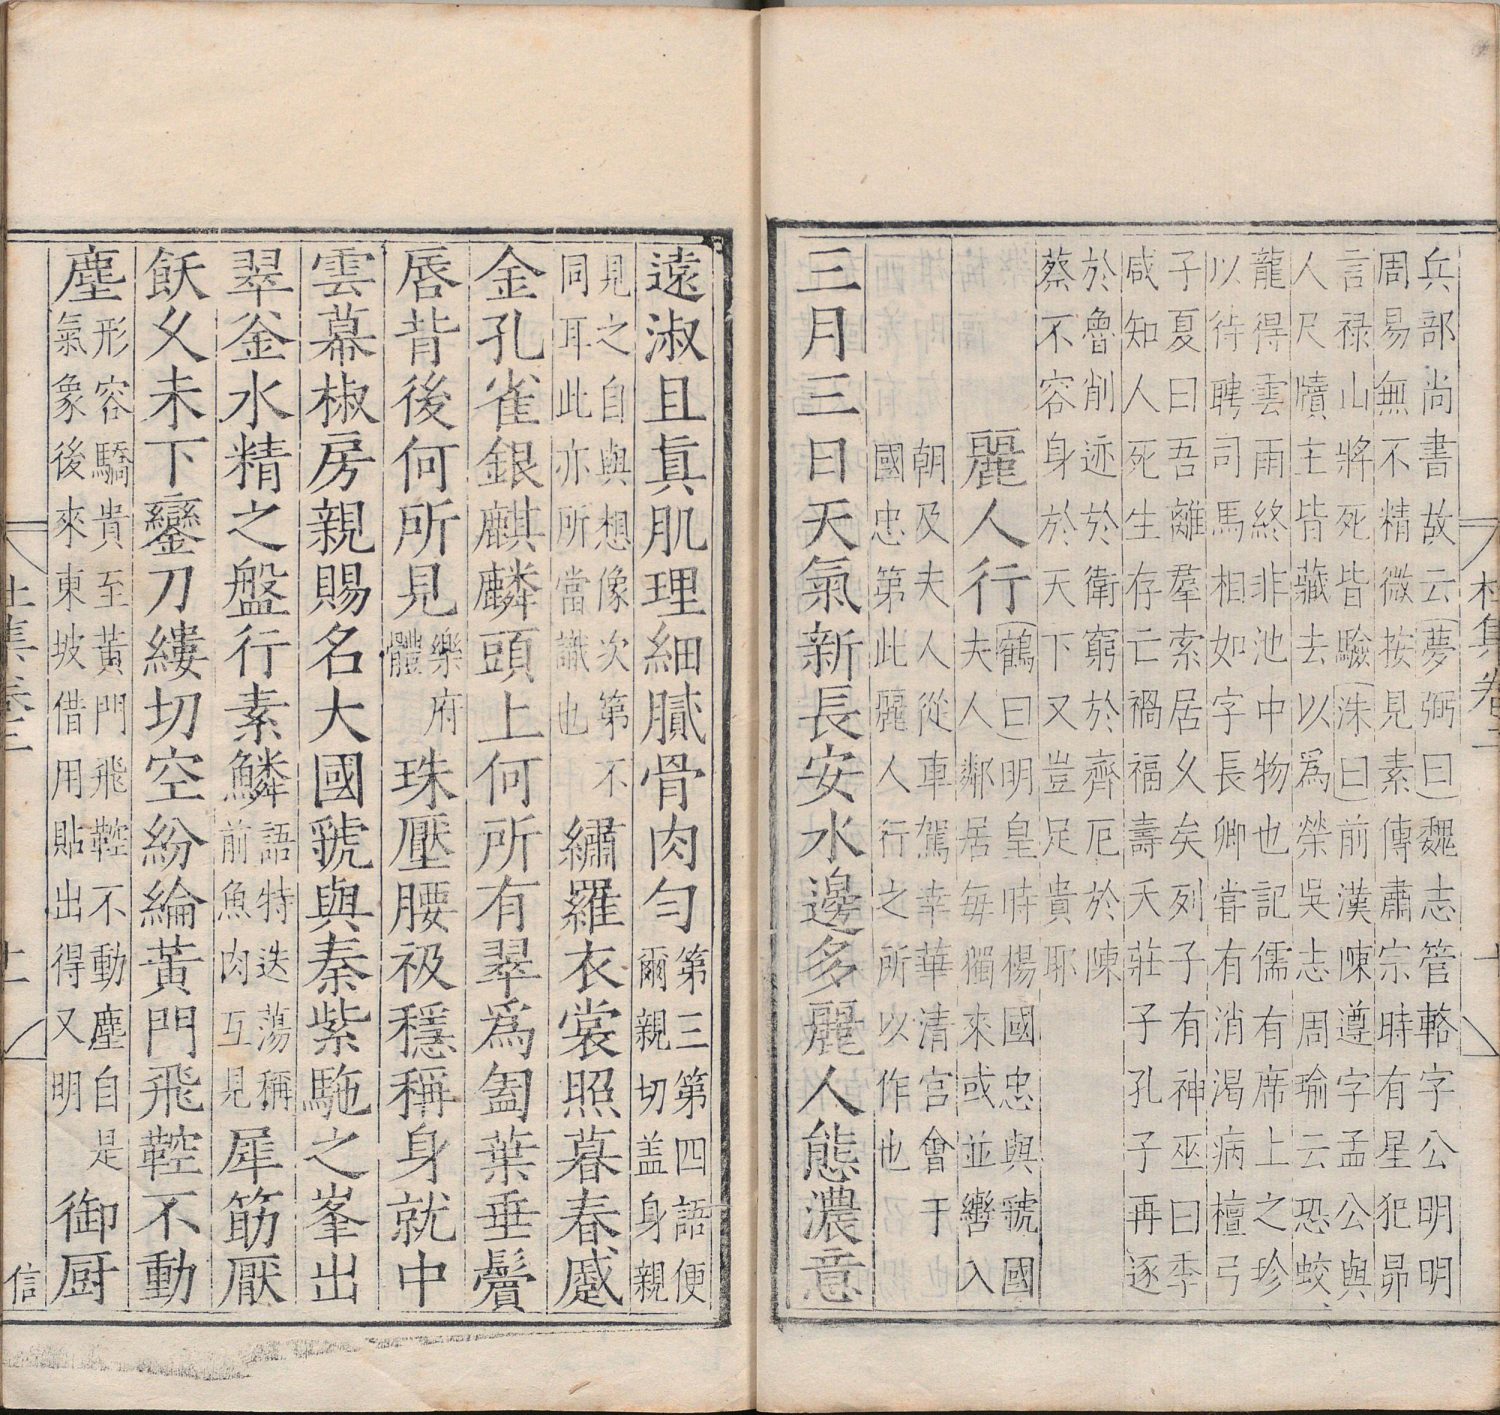 兵部尚書故云夢弼曰魏志管輅字公明明
周易無不精微按見素傳肅宗時有星犯昴
言禄山將死皆驗洙曰前漢陳遵字孟公與
人尺牘主皆藏去以爲榮吳志周瑜云恐蛟
龍得雲雨終非池中物也記儒有席上之珍
以待聘司馬相如字長卿甞有消渴病檀弓
子夏曰吾離羣索居乆矣列子有神巫曰季
咸知人死生存亡禍福壽夭莊子孔子再逐
於魯削迹於衛窮於齊厄於陳
蔡不容身於天下又豈足貴耶
麗人行
鶴曰明皇時楊國忠與虢國
夫人鄰居每來或並轡入
朝及夫人從車駕幸華清宫會于
國忠第此麗人行之所以作也
三月三日天氣新長安水邊多麗人態濃意
杜集卷二
遠淑且真肌理細膩骨肉勻
第三第四語便
爾親切盖身親
見之自與想像次第不
同耳此亦所當識也
繡羅衣裳照暮春蹙
金孔雀銀麒麟頭上何所有翠爲㔩葉垂鬢
唇背後何所見
樂府
體
珠壓腰衱穩稱身就中
雲幕椒房親賜名大國虢與秦紫駞之峯出
翠釜水精之盤行素鱗
語特迭蕩稱
前魚肉互見
犀筯厭
飫乆未下鑾刀縷切空紛綸黄門飛鞚不動
塵
形容驕貴至黄門飛鞚不動塵自是
氣象後來東坡借用貼出得又明
御厨
信